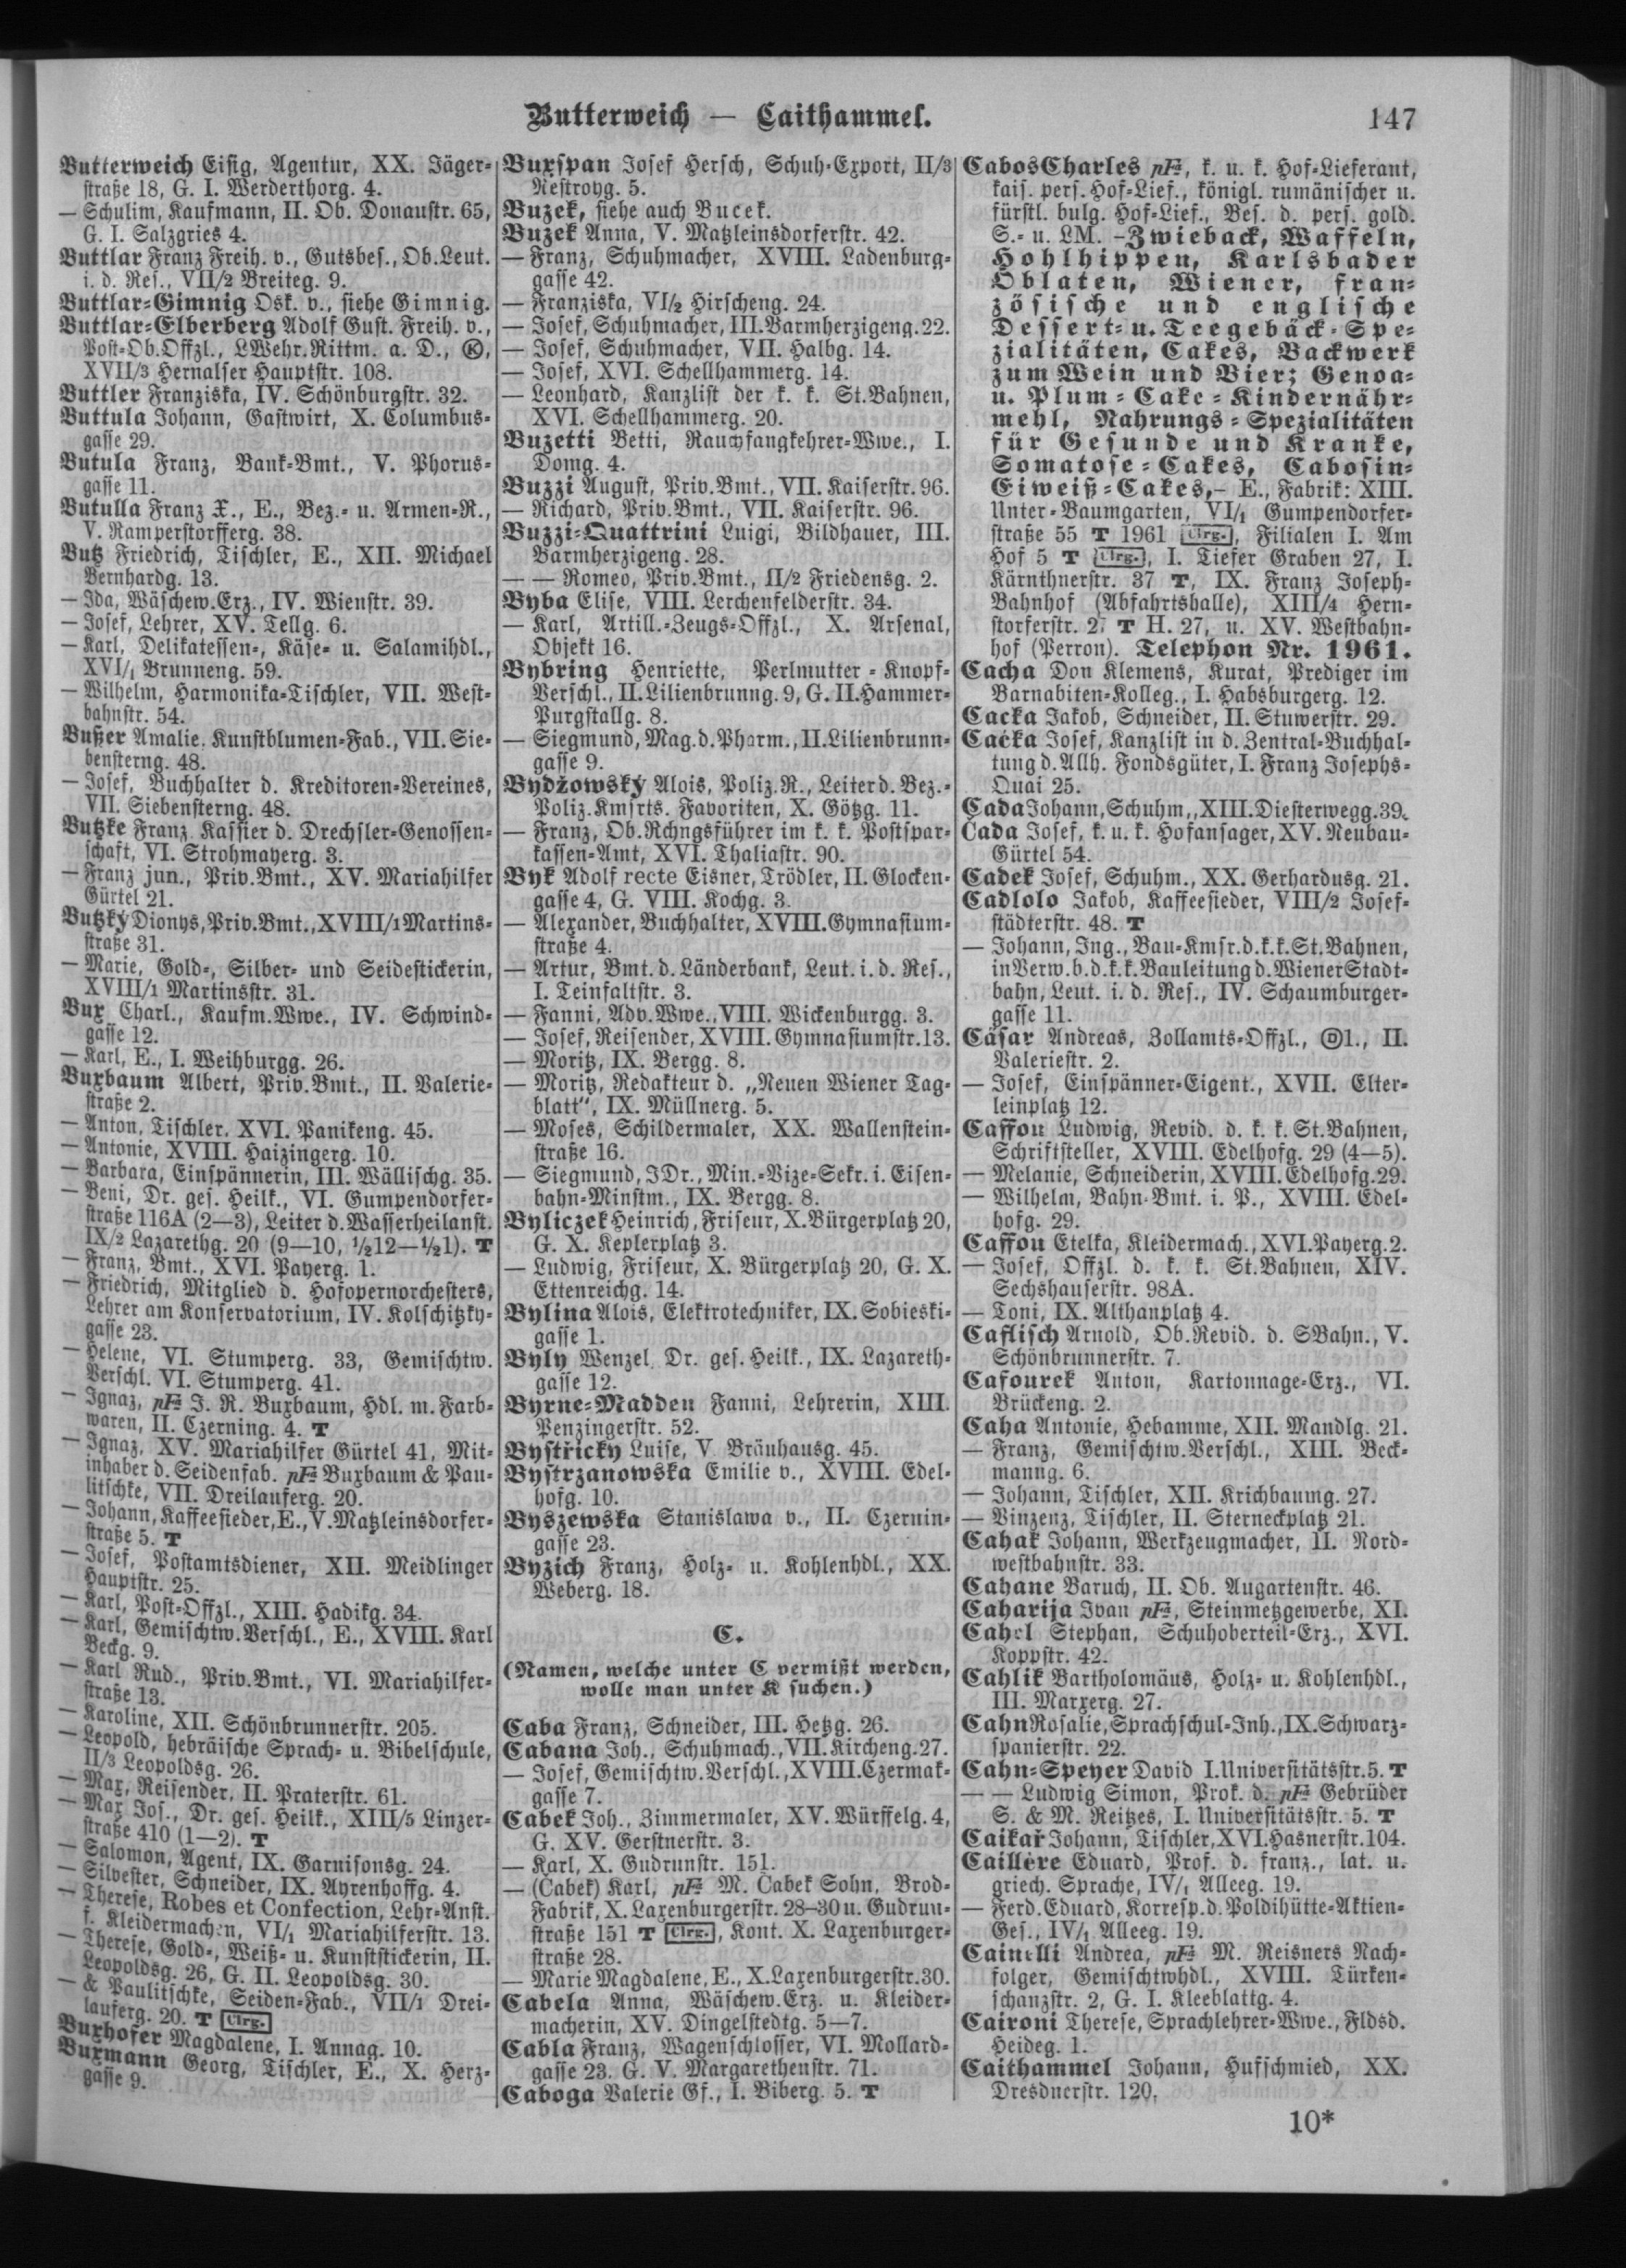 Butterweich — Caithammel.
147
Butterweich Eisig, Agentur, XX. Jäger-
straße 18, G. I. Werderthorg. 4.
— Schulim, Kaufmann, II. Ob. Donaustr. 65,
G. I. Salzgries 4.
Buttlar Franz Freih. v., Gutsbes., Ob.Leut.
i. d. Res., VII/2 Breiteg. 9.
Buttlar-Gimnig Osk. v., siehe Gimnig.
Buttlar-Elberberg Adolf Gust. Freih. v.,
Post-Ob.Offzl., LWehr.Rittm. a. D., Ⓚ,
XVII/3 Hernalser Hauptstr. 108.
Buttler Franziska, IV. Schönburgstr. 32.
Buttula Johann, Gastwirt, X. Columbus-
gasse 29.
Butula Franz, Bank-Bmt., V. Phorus-
gasse 11.
Butulla Franz X., E., Bez.- u. Armen-R.,
V. Ramperstorfferg. 38.
Butz Friedrich, Tischler, E., XII. Michael
Bernhardg. 13.
— Ida, Wäschew.Erz., IV. Wienstr. 39.
— Josef, Lehrer, XV. Tellg. 6.
— Karl, Delikatessen-, Käse- u. Salamihdl.,
XVI/1 Brunneng. 59.
— Wilhelm, Harmonika-Tischler, VII. West-
bahnstr. 54.
Butzer Amalie, Kunstblumen-Fab., VII. Sie-
bensterng. 48.
— Josef, Buchhalter d. Kreditoren-Vereines,
VII. Siebensterng. 48.
Butzke Franz, Kassier d. Drechsler-Genossen-
schaft, VI. Strohmayerg. 3.
— Franz jun., Priv.Bmt., XV. Mariahilfer
Gürtel 21.
Butzký Dionys, Priv.Bmt., XVIII/1 Martins-
straße 31.
— Marie, Gold-, Silber- und Seidestickerin,
XVIII/1 Martinsstr. 31.
Bux Charl., Kaufm.Wwe., IV. Schwind-
gasse 12.
— Karl, E., I. Weihburgg. 26.
Buxbaum Albert, Priv.Bmt., II. Valerie-
straße 2.
— Anton, Tischler, XVI. Panikeng. 45.
— Antonie, XVIII. Haizingerg. 10.
— Barbara, Einspännerin, III. Wällischg. 35.
— Beni, Dr. ges. Heilk., VI. Gumpendorfer-
straße 116A (2—3), Leiter d. Wasserheilanst.
IX/2 Lazarethg. 20 (9—10, ½12—½1). T
— Franz, Bmt., XVI. Payerg. 1.
— Friedrich, Mitglied d. Hofopernorchesters,
Lehrer am Konservatorium, IV. Kolschitzky-
gasse 23.
— Helene, VI. Stumperg. 33, Gemischtw.
Verschl. VI. Stumperg. 41.
— Ignaz, pFa J. R. Buxbaum, Hdl. m. Farb-
waren, II. Czerning. 4. T
— Ignaz, XV. Mariahilfer Gürtel 41, Mit-
inhaber d. Seidenfab. pFa Buxbaum & Pau-
litschke, VII. Dreilauferg. 20.
— Johann, Kaffeesieder, E., V. Matzleinsdorfer-
straße 5. T
— Josef, Postamtsdiener, XII. Meidlinger
Hauptstr. 25.
— Karl, Post-Offzl., XIII. Hadikg. 34.
— Karl, Gemischtw.Verschl., E., XVIII. Karl
Beckg. 9.
— Karl Rud., Priv.Bmt., VI. Mariahilfer-
straße 13.
— Karoline, XII. Schönbrunnerstr. 205.
— Leopold, hebräische Sprach- u. Bibelschule,
II/3 Leopoldsg. 26.
— Max, Reisender, II. Praterstr. 61.
— Max Jos., Dr. ges. Heilk., XIII/5 Linzer-
straße 410 (1—2). T
— Salomon, Agent, IX. Garnisonsg. 24.
— Silvester, Schneider, IX. Ayrenhoffg. 4.
— Therese, Robes et Confection, Lehr-Anst.
f. Kleidermachen, VI/1 Mariahilferstr. 13.
— Therese, Gold-, Weiß- u. Kunststickerin, II.
Leopoldsg. 26, G. II. Leopoldsg. 30.
— & Paulitschke, Seiden-Fab., VII/1 Drei-
lauferg. 20. T Clrg.
Buxhofer Magdalene, I. Annag. 10.
Buxmann Georg, Tischler, E., X. Herz-
gasse 9.
Buxspan Josef Hersch, Schuh-Export, II/3
Nestroyg. 5.
Buzek, siehe auch Bucek.
Buzek Anna, V. Matzleinsdorferstr. 42.
— Franz, Schuhmacher, XVIII. Ladenburg-
gasse 42.
— Franziska, VI/2 Hirscheng. 24.
— Josef, Schuhmacher, III. Barmherzigeng. 22.
— Josef, Schuhmacher, VII. Halbg. 14.
— Josef, XVI. Schellhammerg. 14.
— Leonhard, Kanzlist der k. k. St.Bahnen,
XVI. Schellhammerg. 20.
Buzetti Betti, Rauchfangkehrer-Wwe., I.
Domg. 4.
Buzzi August, Priv.Bmt., VII. Kaiserstr. 96.
— Richard, Priv.Bmt., VII. Kaiserstr. 96.
Buzzi-Quattrini Luigi, Bildhauer, III.
Barmherzigeng. 28.
— — Romeo, Priv.Bmt., II/2 Friedensg. 2.
Byba Elise, VIII. Lerchenfelderstr. 34.
— Karl, Artill.-Zeugs-Offzl., X. Arsenal,
Objekt 16.
Bybring Henriette, Perlmutter-Knopf-
Verschl., II. Lilienbrunng. 9, G. II. Hammer-
Purgstallg. 8.
— Siegmund, Mag. d. Pharm., II. Lilienbrunn-
gasse 9.
Bydžowský Alois, Poliz.R., Leiter d. Bez.-
Poliz.Kmsrts. Favoriten, X. Götzg. 11.
— Franz, Ob.Rchngsführer im k. k. Postspar-
kassen-Amt, XVI. Thaliastr. 90.
Byk Adolf recte Eisner, Trödler, II. Glocken-
gasse 4, G. VIII. Kochg. 3.
— Alexander, Buchhalter, XVIII. Gymnasium-
straße 4.
— Artur, Bmt. d. Länderbank, Leut. i. d. Res.,
I. Teinfaltstr. 3.
— Fanni, Adv.Wwe., VIII. Wickenburgg. 3.
— Josef, Reisender, XVIII. Gymnasiumstr. 13.
— Moritz, IX. Bergg. 8.
— Moritz, Redakteur d. „Neuen Wiener Tag-
blatt“, IX. Müllnerg. 5.
— Moses, Schildermaler, XX. Wallenstein-
straße 16.
— Siegmund, JDr., Min.-Vize-Sekr. i. Eisen-
bahn-Minstm., IX. Bergg. 8.
Byliczek Heinrich, Friseur, X. Bürgerplatz 20,
G. X. Keplerplatz 3.
— Ludwig, Friseur, X. Bürgerplatz 20, G. X.
Ettenreichg. 14.
Bylina Alois, Elektrotechniker, IX. Sobieski-
gasse 1.
Byly Wenzel, Dr. ges. Heilk., IX. Lazareth-
gasse 12.
Byrne-Madden Fanni, Lehrerin, XIII.
Penzingerstr. 52.
Bystřicky Luise, V. Bräuhausg. 45.
Bystrzanowska Emilie v., XVIII. Edel-
hofg. 10.
Byszewska Stanislawa v., II. Czernin-
gasse 23.
Byzich Franz, Holz- u. Kohlenhdl., XX.
Weberg. 18.
C.
(Namen, welche unter C vermißt werden,
wolle man unter K suchen.)
Caba Franz, Schneider, III. Hetzg. 26.
Cabana Joh., Schuhmach., VII. Kircheng. 27.
— Josef, Gemischtw.Verschl., XVIII. Czermak-
gasse 7.
Cabek Joh., Zimmermaler, XV. Würffelg. 4,
G. XV. Gerstnerstr. 3.
— Karl, X. Gudrunstr. 151.
— (Čabek) Karl, pFa M. Čabek Sohn, Brod-
Fabrik, X. Laxenburgerstr. 28–30 u. Gudrun-
straße 151 T Clrg., Kont. X. Laxenburger-
straße 28.
— Marie Magdalene, E., X. Laxenburgerstr. 30.
Cabela Anna, Wäschew.Erz. u. Kleider-
macherin, XV. Dingelstedtg. 5—7.
Cabla Franz, Wagenschlosser, VI. Mollard-
gasse 23. G. V. Margarethenstr. 71.
Caboga Valerie Gf., I. Biberg. 5. T
Cabos Charles pFa, k. u. k. Hof-Lieferant,
kais. pers. Hof-Lief., königl. rumänischer u.
fürstl. bulg. Hof-Lief., Bes. d. pers. gold.
S.- u. LM. -Zwieback, Waffeln,
Hohlhippen, Karlsbader
Oblaten, Wiener, fran-
zösische und englische
Dessert- u. Teegebäck-Spe-
zialitäten, Cakes, Backwerk
zum Wein und Bier; Genoa-
u. Plum-Cake-Kindernähr-
mehl, Nahrungs-Spezialitäten
für Gesunde und Kranke,
Somatose-Cakes, Cabosin-
Eiweiß-Cakes,- E., Fabrik: XIII.
Unter-Baumgarten, VI/1 Gumpendorfer-
straße 55 T 1961 Clrg., Filialen I. Am
Hof 5 T Clrg., I. Tiefer Graben 27, I.
Kärnthnerstr. 37 T, IX. Franz Joseph-
Bahnhof (Abfahrtshalle), XIII/4 Hern-
storferstr. 27 T H. 27, u. XV. Westbahn-
hof (Perron). Telephon Nr. 1961.
Cacha Don Klemens, Kurat, Prediger im
Barnabiten-Kolleg., I. Habsburgerg. 12.
Cacka Jakob, Schneider, II. Stuwerstr. 29.
Cačka Josef, Kanzlist in d. Zentral-Buchhal-
tung d. Allh. Fondsgüter, I. Franz Josephs-
Quai 25.
Čada Johann, Schuhm., XIII. Diesterwegg. 39.
Čada Josef, k. u. k. Hofansager, XV. Neubau-
Gürtel 54.
Cadek Josef, Schuhm., XX. Gerhardusg. 21.
Cadlolo Jakob, Kaffeesieder, VIII/2 Josef-
städterstr. 48. T
— Johann, Ing., Bau-Kmsr. d. k. k. St.Bahnen,
in Verw. b. d. k. k. Bauleitung d. Wiener Stadt-
bahn, Leut. i. d. Res., IV. Schaumburger-
gasse 11.
Cäsar Andreas, Zollamts-Offzl., 1., II.
Valeriestr. 2.
— Josef, Einspänner-Eigent., XVII. Elter-
leinplatz 12.
Caffou Ludwig, Revid. d. k. k. St.Bahnen,
Schriftsteller, XVIII. Edelhofg. 29 (4—5).
— Melanie, Schneiderin, XVIII. Edelhofg. 29.
— Wilhelm, Bahn-Bmt. i. P., XVIII. Edel-
hofg. 29.
Caffou Etelka, Kleidermach., XVI. Payerg. 2.
— Josef, Offzl. d. k. k. St.Bahnen, XIV.
Sechshauserstr. 98A.
— Toni, IX. Althanplatz 4.
Caflisch Arnold, Ob.Revid. d. SBahn., V.
Schönbrunnerstr. 7.
Cafourek Anton, Kartonnage-Erz., VI.
Brückeng. 2.
Caha Antonie, Hebamme, XII. Mandlg. 21.
— Franz, Gemischtw.Verschl., XIII. Beck-
manng. 6.
— Johann, Tischler, XII. Krichbaumg. 27.
— Vinzenz, Tischler, II. Sterneckplatz 21.
Cahak Johann, Werkzeugmacher, II. Nord-
westbahnstr. 33.
Cahane Baruch, II. Ob. Augartenstr. 46.
Caharija Ivan pFa, Steinmetzgewerbe, XI.
Cahel Stephan, Schuhoberteil-Erz., XVI.
Koppstr. 42.
Cahlik Bartholomäus, Holz- u. Kohlenhdl.,
III. Marxerg. 27.
Cahn Rosalie, Sprachschul-Inh., IX. Schwarz-
spanierstr. 22.
Cahn-Speyer David I. Universitätsstr. 5. T
— — Ludwig Simon, Prok. d. pFa Gebrüder
S. & M. Reitzes, I. Universitätsstr. 5. T
Caikař Johann, Tischler, XVI. Hasnerstr. 104.
Caillère Eduard, Prof. d. franz., lat. u.
griech. Sprache, IV/1 Alleeg. 19.
— Ferd. Eduard, Korresp. d. Poldihütte-Aktien-
Ges., IV/1 Alleeg. 19.
Cainelli Andrea, pFa M. Reisners Nach-
folger, Gemischtwhdl., XVIII. Türken-
schanzstr. 2, G. I. Kleeblattg. 4.
Caironi Therese, Sprachlehrer-Wwe., Fldsd.
Heideg. 1.
Caithammel Johann, Hufschmied, XX.
Dresdnerstr. 120.
10*